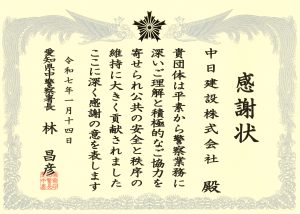 感謝状
中日建設株式会社 殿
貴団体は平素から警察業務に
深いご理解と積極的なご協力を
寄せられ公共の安全と秩序の
維持に大きく貢献されました
ここに深く感謝の意を表します
令和七年一月十四日
愛知県中警察署長
林 昌彦